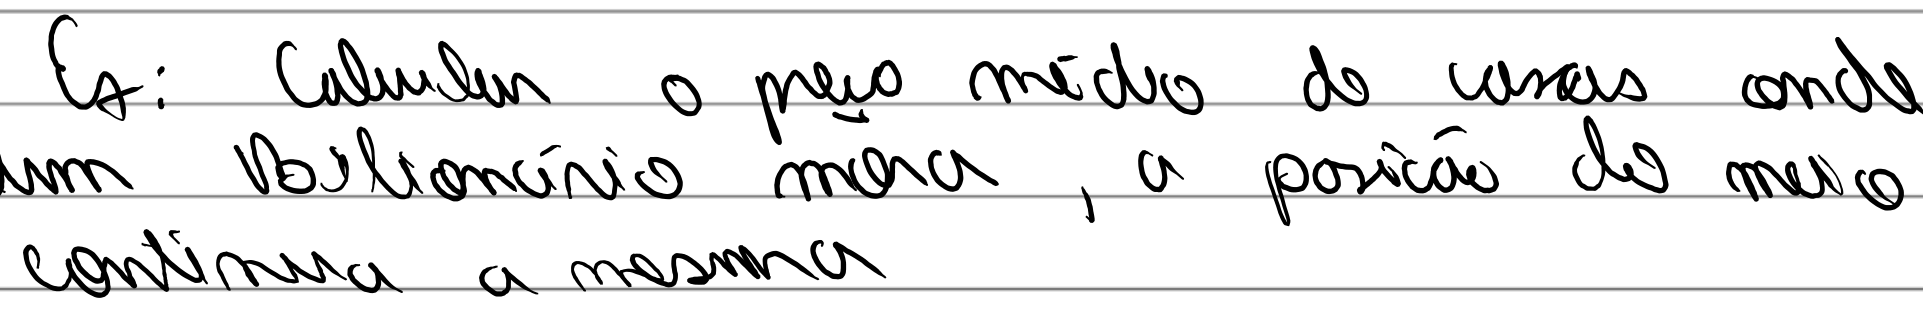 Ex: Calcular o preço médio de casas onde
um Bilionário mora, a posição do meio
continua a mesma